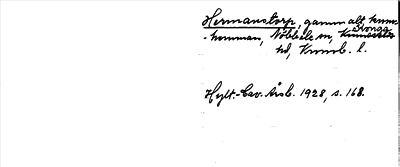 Hermanstorp, gammalt
Konga
-kvarnen, Nöbbele sn,
hd, Kronob. l.
Hylt.-Cav. Årsb. 1928, s. 168.